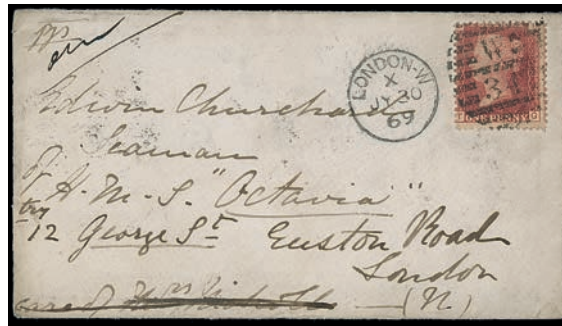 LONDON-W
X
JY 30
69
W
31
Edwin Churchard
Seaman
of H. M. S. "Octavia"
12 George St Euston Road
London
(N)
care of